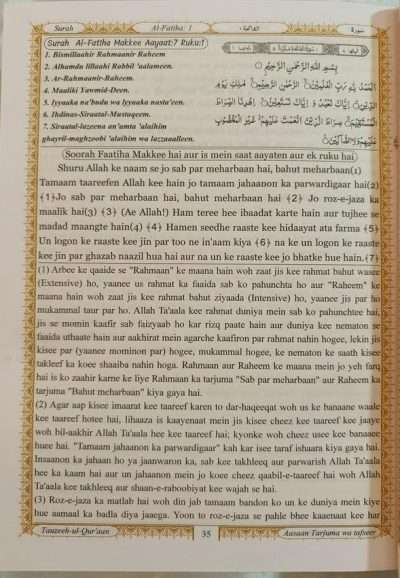 Surah Al-Fatiha: 1 الفاتحة ١ سورة
Surah Al-Fatiha Makkee Aayaat:7 Ruku:1
1. Bismillaahir Rahmaanir Raheem.
2. Alhamdu lillaahi Rabbil 'aalameen.
3. Ar-Rahmaanir-Raheem.
4. Maaliki Yawmid-Deen.
5. Iyyaaka na'budu wa Iyyaaka nasta'een.
6. Ihdinas-Siraatal-Mustaqeem.
7. Siraatal-lazeena an'amta 'alaihim
ghayril-maghzoobi 'alaihim wa lazzaaalleen.
بِسْمِ اللّٰهِ الرَّحْمٰنِ الرَّحِيْمِ
اَلْحَمْدُ لِلّٰهِ رَبِّ الْعٰلَمِيْنَ الرَّحْمٰنِ الرَّحِيْمِ مٰلِكِ يَوْمِ
الدِّيْنِ اِيَّاكَ نَعْبُدُ وَ اِيَّاكَ نَسْتَعِيْنُ اِهْدِنَا الصِّرَاطَ
الْمُسْتَقِيْمَ صِرَاطَ الَّذِيْنَ اَنْعَمْتَ عَلَيْهِمْ غَيْرِ الْمَغْضُوْبِ
عَلَيْهِمْ وَلَا الضَّآلِّيْنَ
Soorah Faatiha Makkee hai aur is mein saat aayaten aur ek ruku hai
Shuru Allah ke naam se jo sab par meharbaan hai, bahut meharbaan(1)
Tamaam taareefen Allah kee hain jo tamaam jahaanon ka parwardigaar hai(2)
{1}Jo sab par meharbaan hai, bahut meharbaan hai {2} Jo roz-e-jaza ka
maalik hai(3) {3} (Ae Allah!) Ham teree hee ibaadat karte hain aur tujhee se
madad maangte hain(4) {4} Hamen seedhe raaste kee hidaayat ata farma {5}
Un logon ke raaste kee jin par too ne in'aam kiya {6} na ke un logon ke raaste
kee jin par ghazab naazil hua hai aur na un ke raaste kee jo bhatke hue hain.{7}
(1) Arbee ke qaaide se "Rahmaan" ke maana hain woh zaat jis kee rahmat bahut wasee
(Extensive) ho, yaanee us rahmat ka faaida sab ko pahunchta ho aur "Raheem" ke
maana hain woh zaat jis kee rahmat bahut ziyaada (Intensive) ho, yaanee jis par ho
mukammal taur par ho. Allah Ta'aala kee rahmat duniya mein sab ko pahunchtee hai,
jis se momin kaafir sab faizyaab ho kar rizq paate hain aur duniya kee nematon se
faaida uthaate hain aur aakhirat mein agarche kaafiron par rahmat nahin hogee, lekin jis
kisee par (yaanee mominon par) hogee, mukammal hogee, ke nematon ke saath kisee
takleef ka koee shaaiba nahin hoga. Rahmaan aur Raheem ke maana mein jo yeh farq
hai is ko zaahir karne ke liye Rahmaan ka tarjuma "Sab par meharbaan" aur Raheem ka
tarjuma "Bahut meharbaan" kiya gaya hai.
(2) Agar aap kisee imaarat kee taareef karen to dar-haqeeqat woh us ke banaane waale
kee taareef hotee hai, lihaaza is kaayenaat mein jis kisee cheez kee taareef kee jaaye
woh bil-aakhir Allah Ta'aala hee kee taareef hai; kyonke woh cheez usee kee banaaee
huee hai. "Tamaam jahaanon ka parwardigaar" kah kar isee taraf ishaara kiya gaya hai.
Insaanon ka jahaan ho ya jaanwaron ka, sab kee takhleeq aur parwarish Allah Ta'aala
hee ka kaam hai aur un jahaanon mein jo koee cheez qaabil-e-taareef hai woh Allah
Ta'aala kee takhleeq aur shaan-e-raboobiyat kee wajah se hai.
(3) Roz-e-jaza ka matlab hai woh din jab tamaam bandon ko un ke duniya mein kiye
hue aamaal ka badla diya jaaega. Yoon to roz-e-jaza se pahle bhee kaaenaat kee har
Tauzeeh-ul-Qur'aan 35 Aasaan Tarjuma wa tafseer